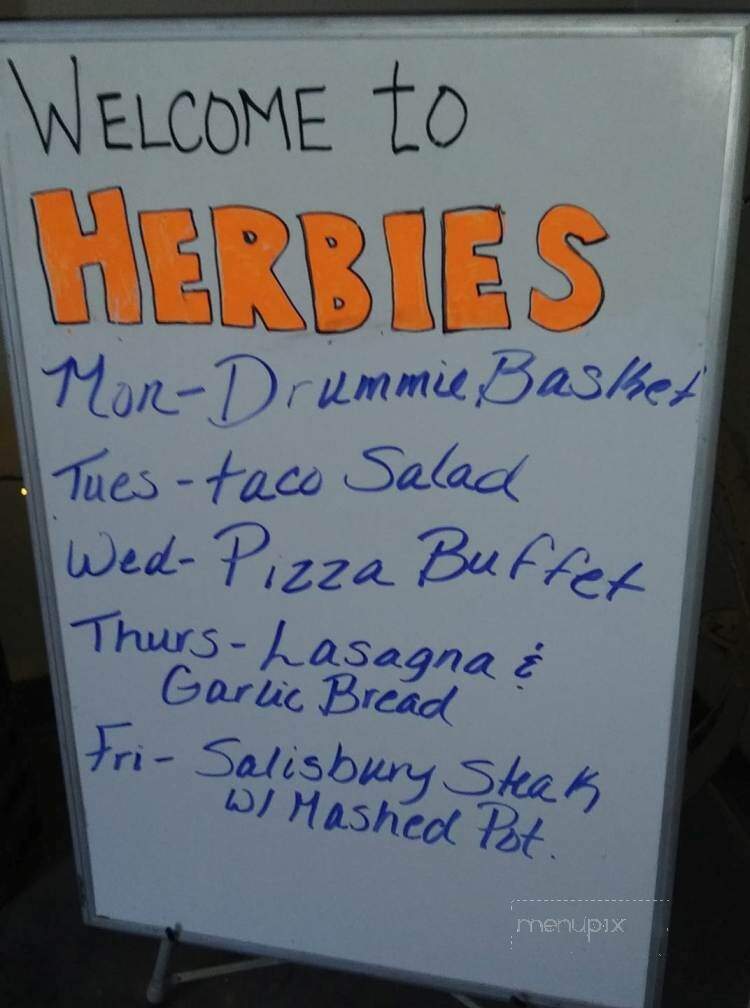 WELCOME to
HERBIES
Mon - Drummie Basket
Tues - taco Salad
Wed - Pizza Buffet
Thurs - Lasagna &
Garlic Bread
Fri - Salisbury Steak
w/ Mashed Pot.
menupix